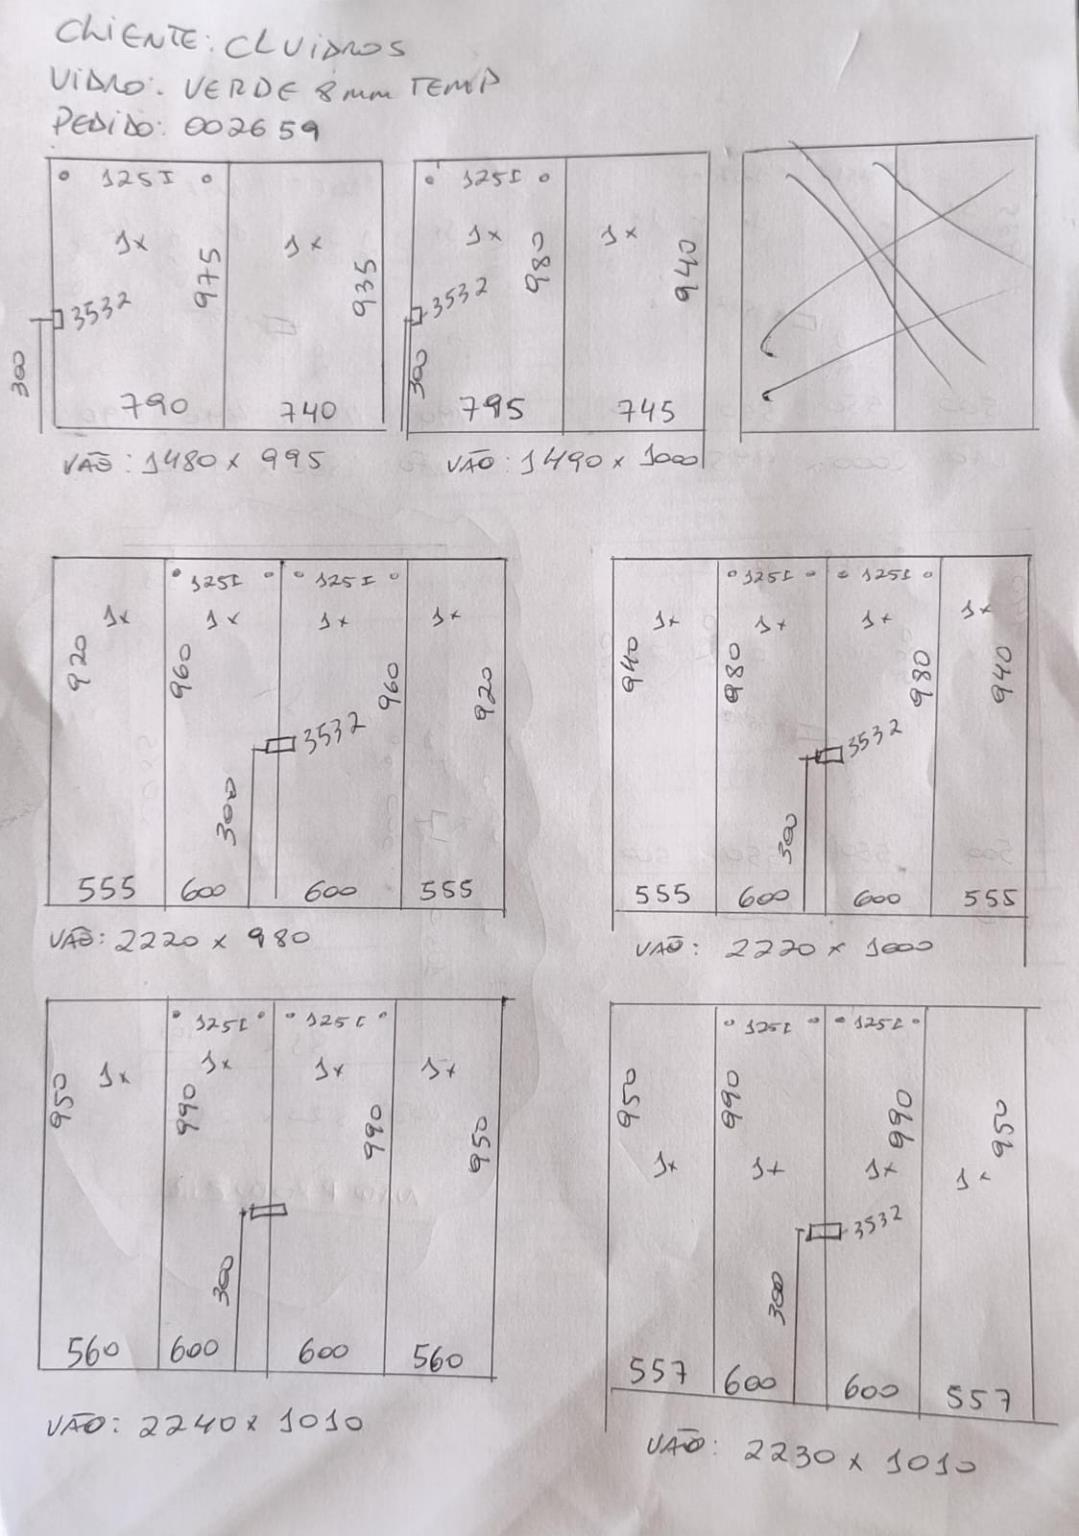 CLIENTE: CLVIDROS
VIDRO: VERDE 8mm TEMP
PEDIDO: 002659
125I
1x
1x
975
935
3532
300
790
740
VÃO: 1480 x 995
125I
1x
1x
980
940
3532
300
795
745
VÃO: 1490 x 1000
125I
125I
1x
1x
1x
1x
920
960
960
920
3532
300
555
600
600
555
VÃO: 2220 x 980
125I
125I
1x
1x
1x
1x
940
980
980
940
3532
300
555
600
600
555
VÃO: 2220 x 1000
125I
125I
1x
1x
1x
1x
950
990
990
950
300
560
600
600
560
VÃO: 2240 x 1010
125I
125I
950
990
990
950
1x
1x
1x
1x
3532
300
557
600
600
557
VÃO: 2230 x 1010